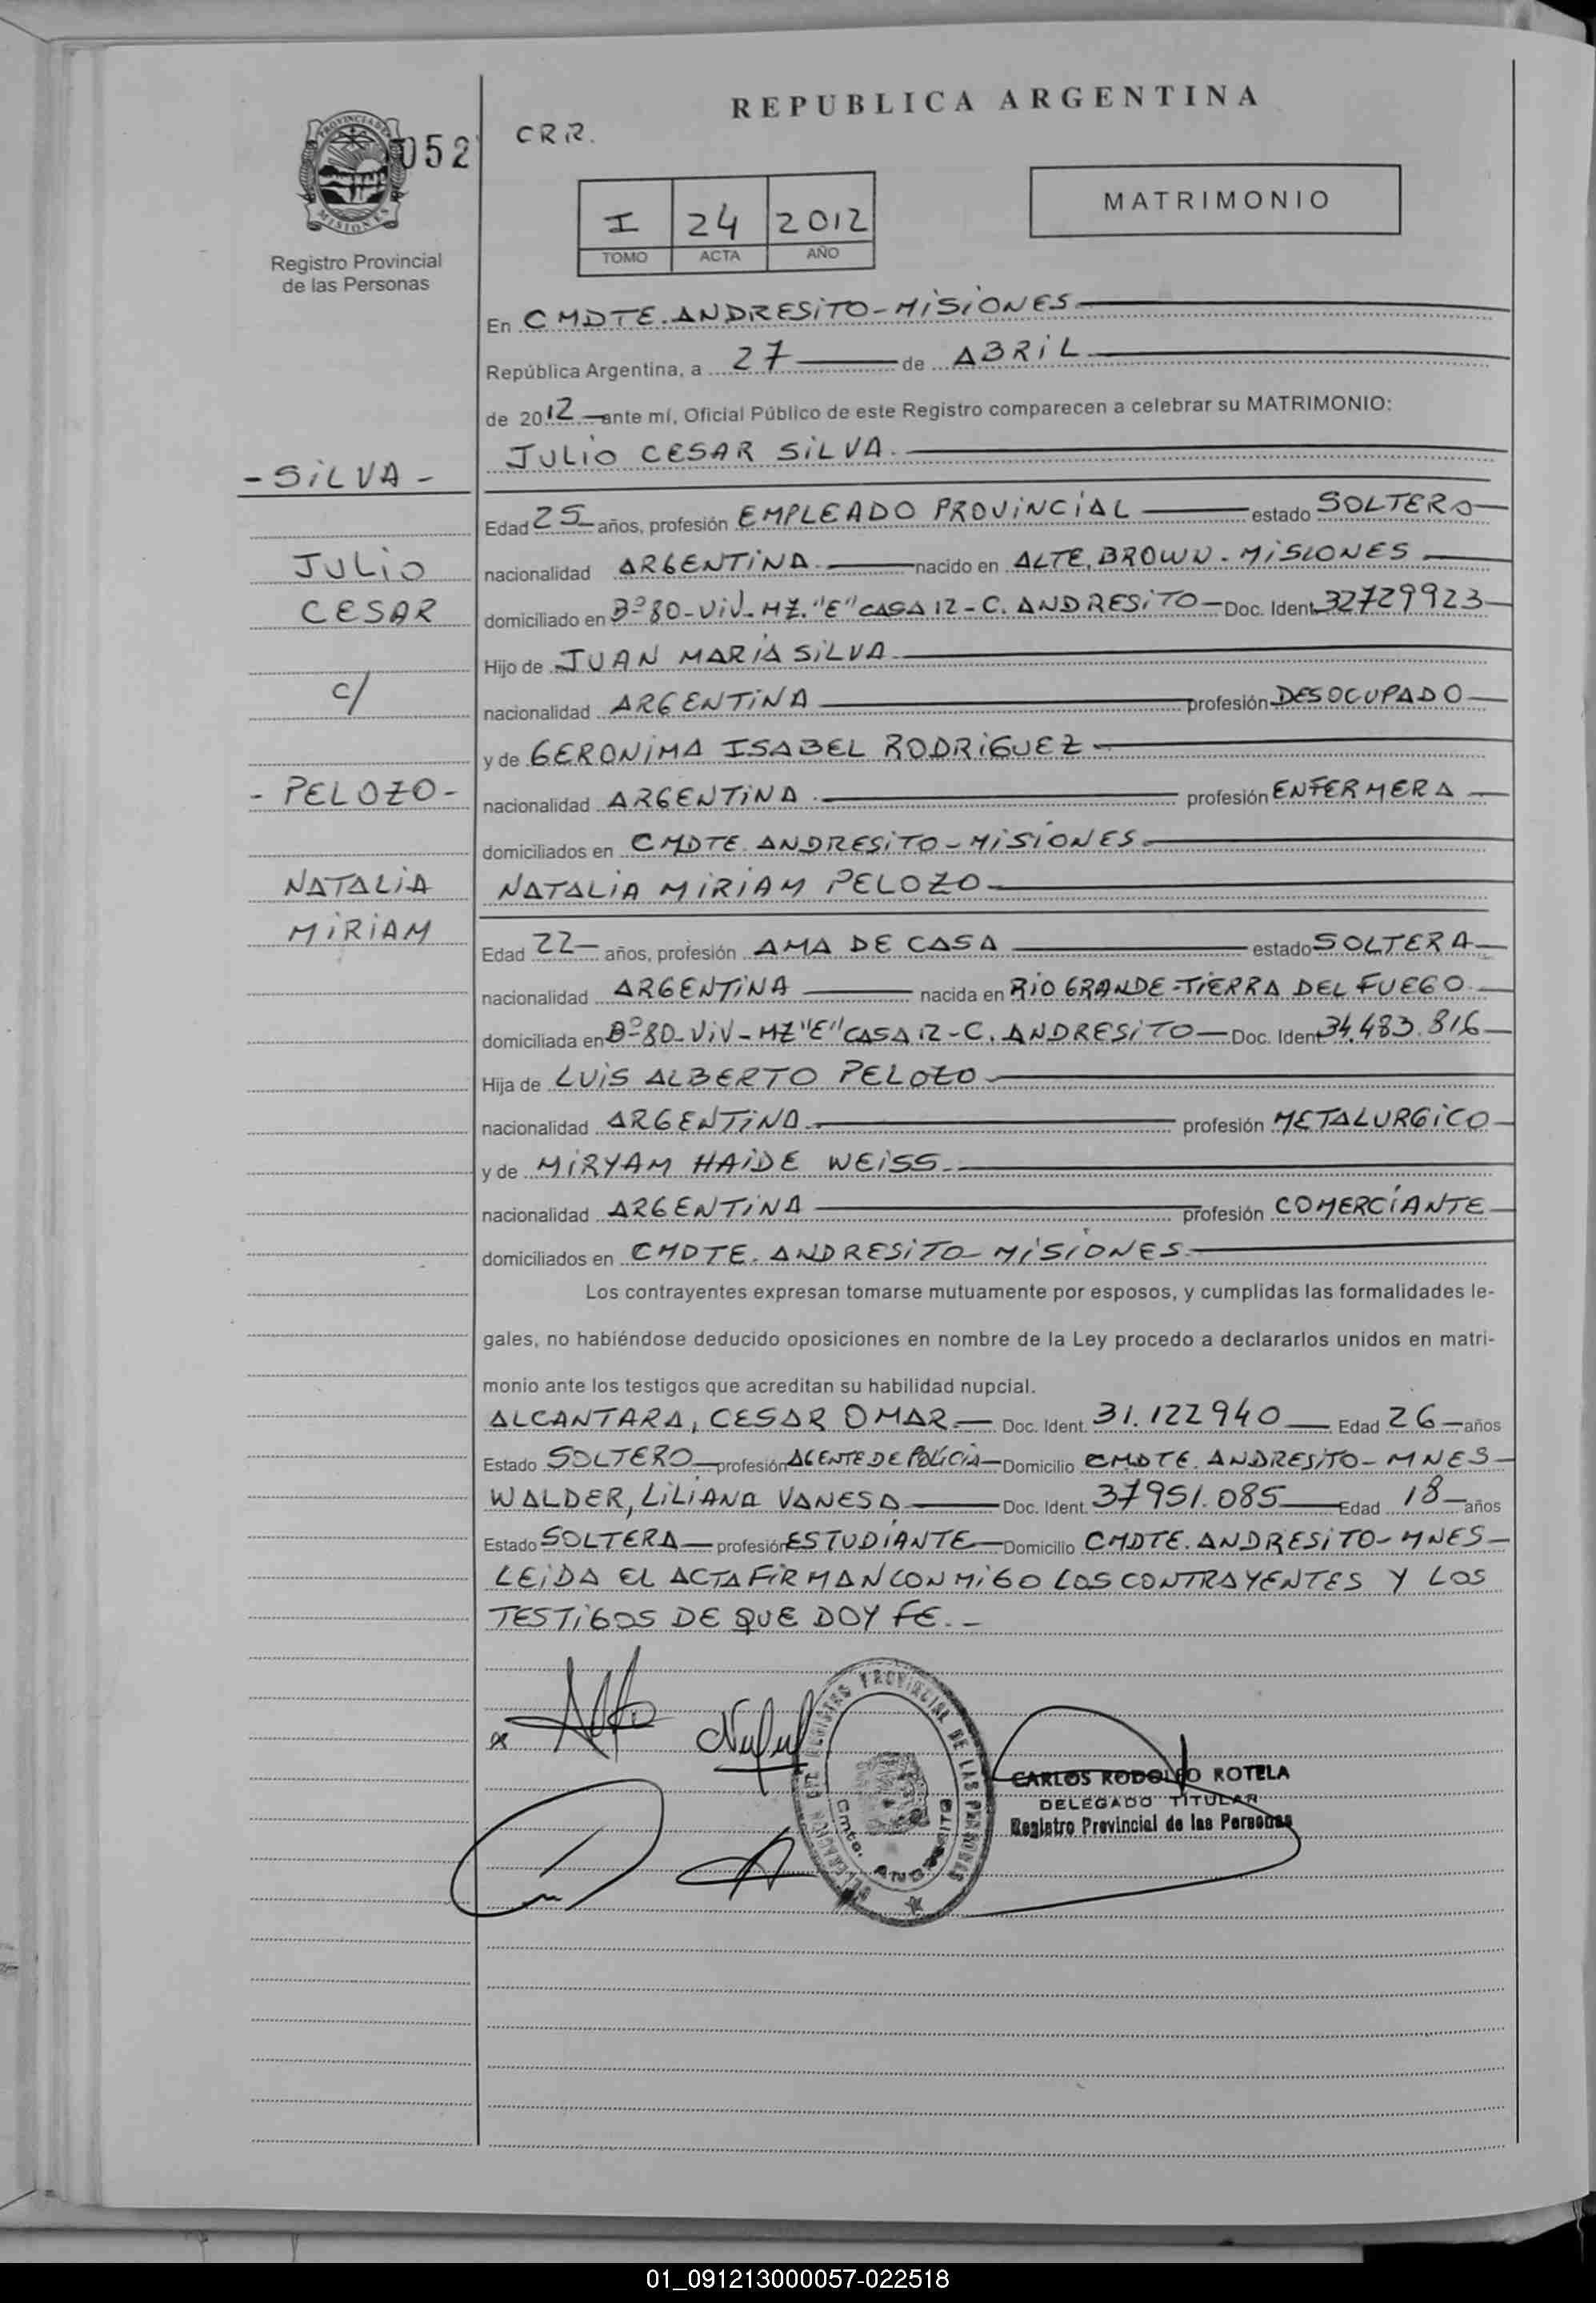 REPUBLICA ARGENTINA
PROVINCIA DE
MISIONES
052
CRR.
Registro Provincial
de las Personas
I 24 2012
TOMO ACTA AÑO
MATRIMONIO
En CMDTE. ANDRESiTO - MiSiONES
República Argentina, a 27 de ABRiL
de 2012 ante mí, Oficial Público de este Registro comparecen a celebrar su MATRIMONIO:
JULiO CESAR SiLVA.
- SiLVA -
Edad 25 años, profesión EMPLEADO PROViNCiAL estado SOLTERO
JULiO
nacionalidad ARGENTiNA. nacido en ALTE. BROWN - MiSiONES
CESAR
domiciliado en Bº 80 - ViV - MZ. "E" CASA 12 - C. ANDRESiTO - Doc. Ident. 32729923
Hijo de JUAN MARiA SiLVA
c/
nacionalidad ARGENTiNA profesión DESOCUPADO
y de GERONiMA ISABEL RODRiGUEZ
- PELOZO -
nacionalidad ARGENTiNA profesión ENFERMERA
domiciliados en CMDTE. ANDRESiTO - MiSiONES.
NATALiA
NATALiA MiRiAM PELOZO
MiRiAM
Edad 22 años, profesión AMA DE CASA estado SOLTERA
nacionalidad ARGENTiNA nacida en RiO GRANDE - TiERRA DEL FUEGO
domiciliada en Bº 80 - ViV - MZ "E" CASA 12 - C. ANDRESiTO - Doc. Ident. 34.483.816
Hija de LUiS ALBERTO PELOZO
nacionalidad ARGENTiNA profesión METALURGiCO
y de MiRYAM HAiDE WEiSS.
nacionalidad ARGENTiNA profesión COMERCiANTE
domiciliados en CMDTE. ANDRESiTO - MiSiONES
Los contrayentes expresan tomarse mutuamente por esposos, y cumplidas las formalidades le-
gales, no habiéndose deducido oposiciones en nombre de la Ley procedo a declararlos unidos en matri-
monio ante los testigos que acreditan su habilidad nupcial.
ALCANTARA, CESAR OMAR. Doc. Ident. 31.122940 Edad 26 años
Estado SOLTERO profesión AGENTE DE POLiCiA Domicilio CMDTE. ANDRESiTO - MNES
WALDER, LiLiANA VANESA Doc. Ident. 37951.085 Edad 18 años
Estado SOLTERA profesión ESTUDiANTE Domicilio CMDTE. ANDRESiTO - MNES
LEiDA EL ACTA FiRMAN CONMiGO LOS CONTRAYENTES Y LOS
TESTiGOS DE QUE DOY FE. -
DELEGACION DEL REGISTRO PROVINCIAL DE LAS PERSONAS
Cmte. ANDRESITO
CARLOS RODOLFO ROTELA
DELEGADO TITULAR
Registro Provincial de las Personas
01_091213000057-022518